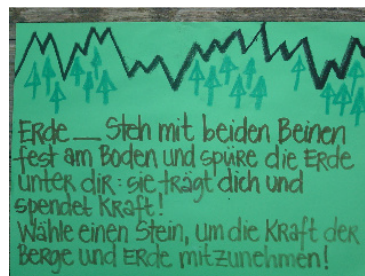 Erde — Steh mit beiden Beinen
fest am Boden und spüre die Erde
unter dir: sie trägt dich und
spendet Kraft!
Wähle einen Stein, um die Kraft der
Berge und Erde mitzunehmen!